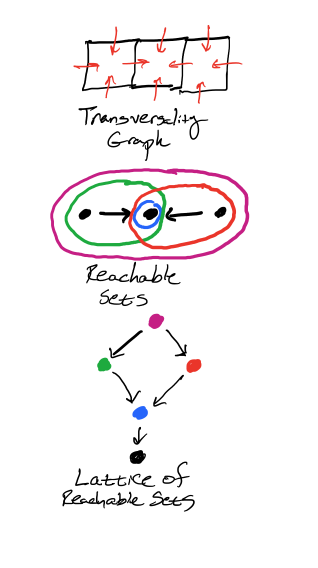 Transversality
Graph
Reachable
Sets
Lattice of
Reachable Sets